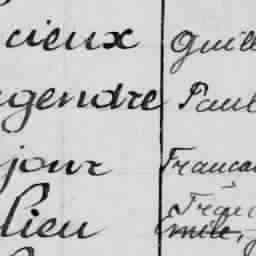 cieux Guill
gendre Paul
jour Francai
lieu Emile,